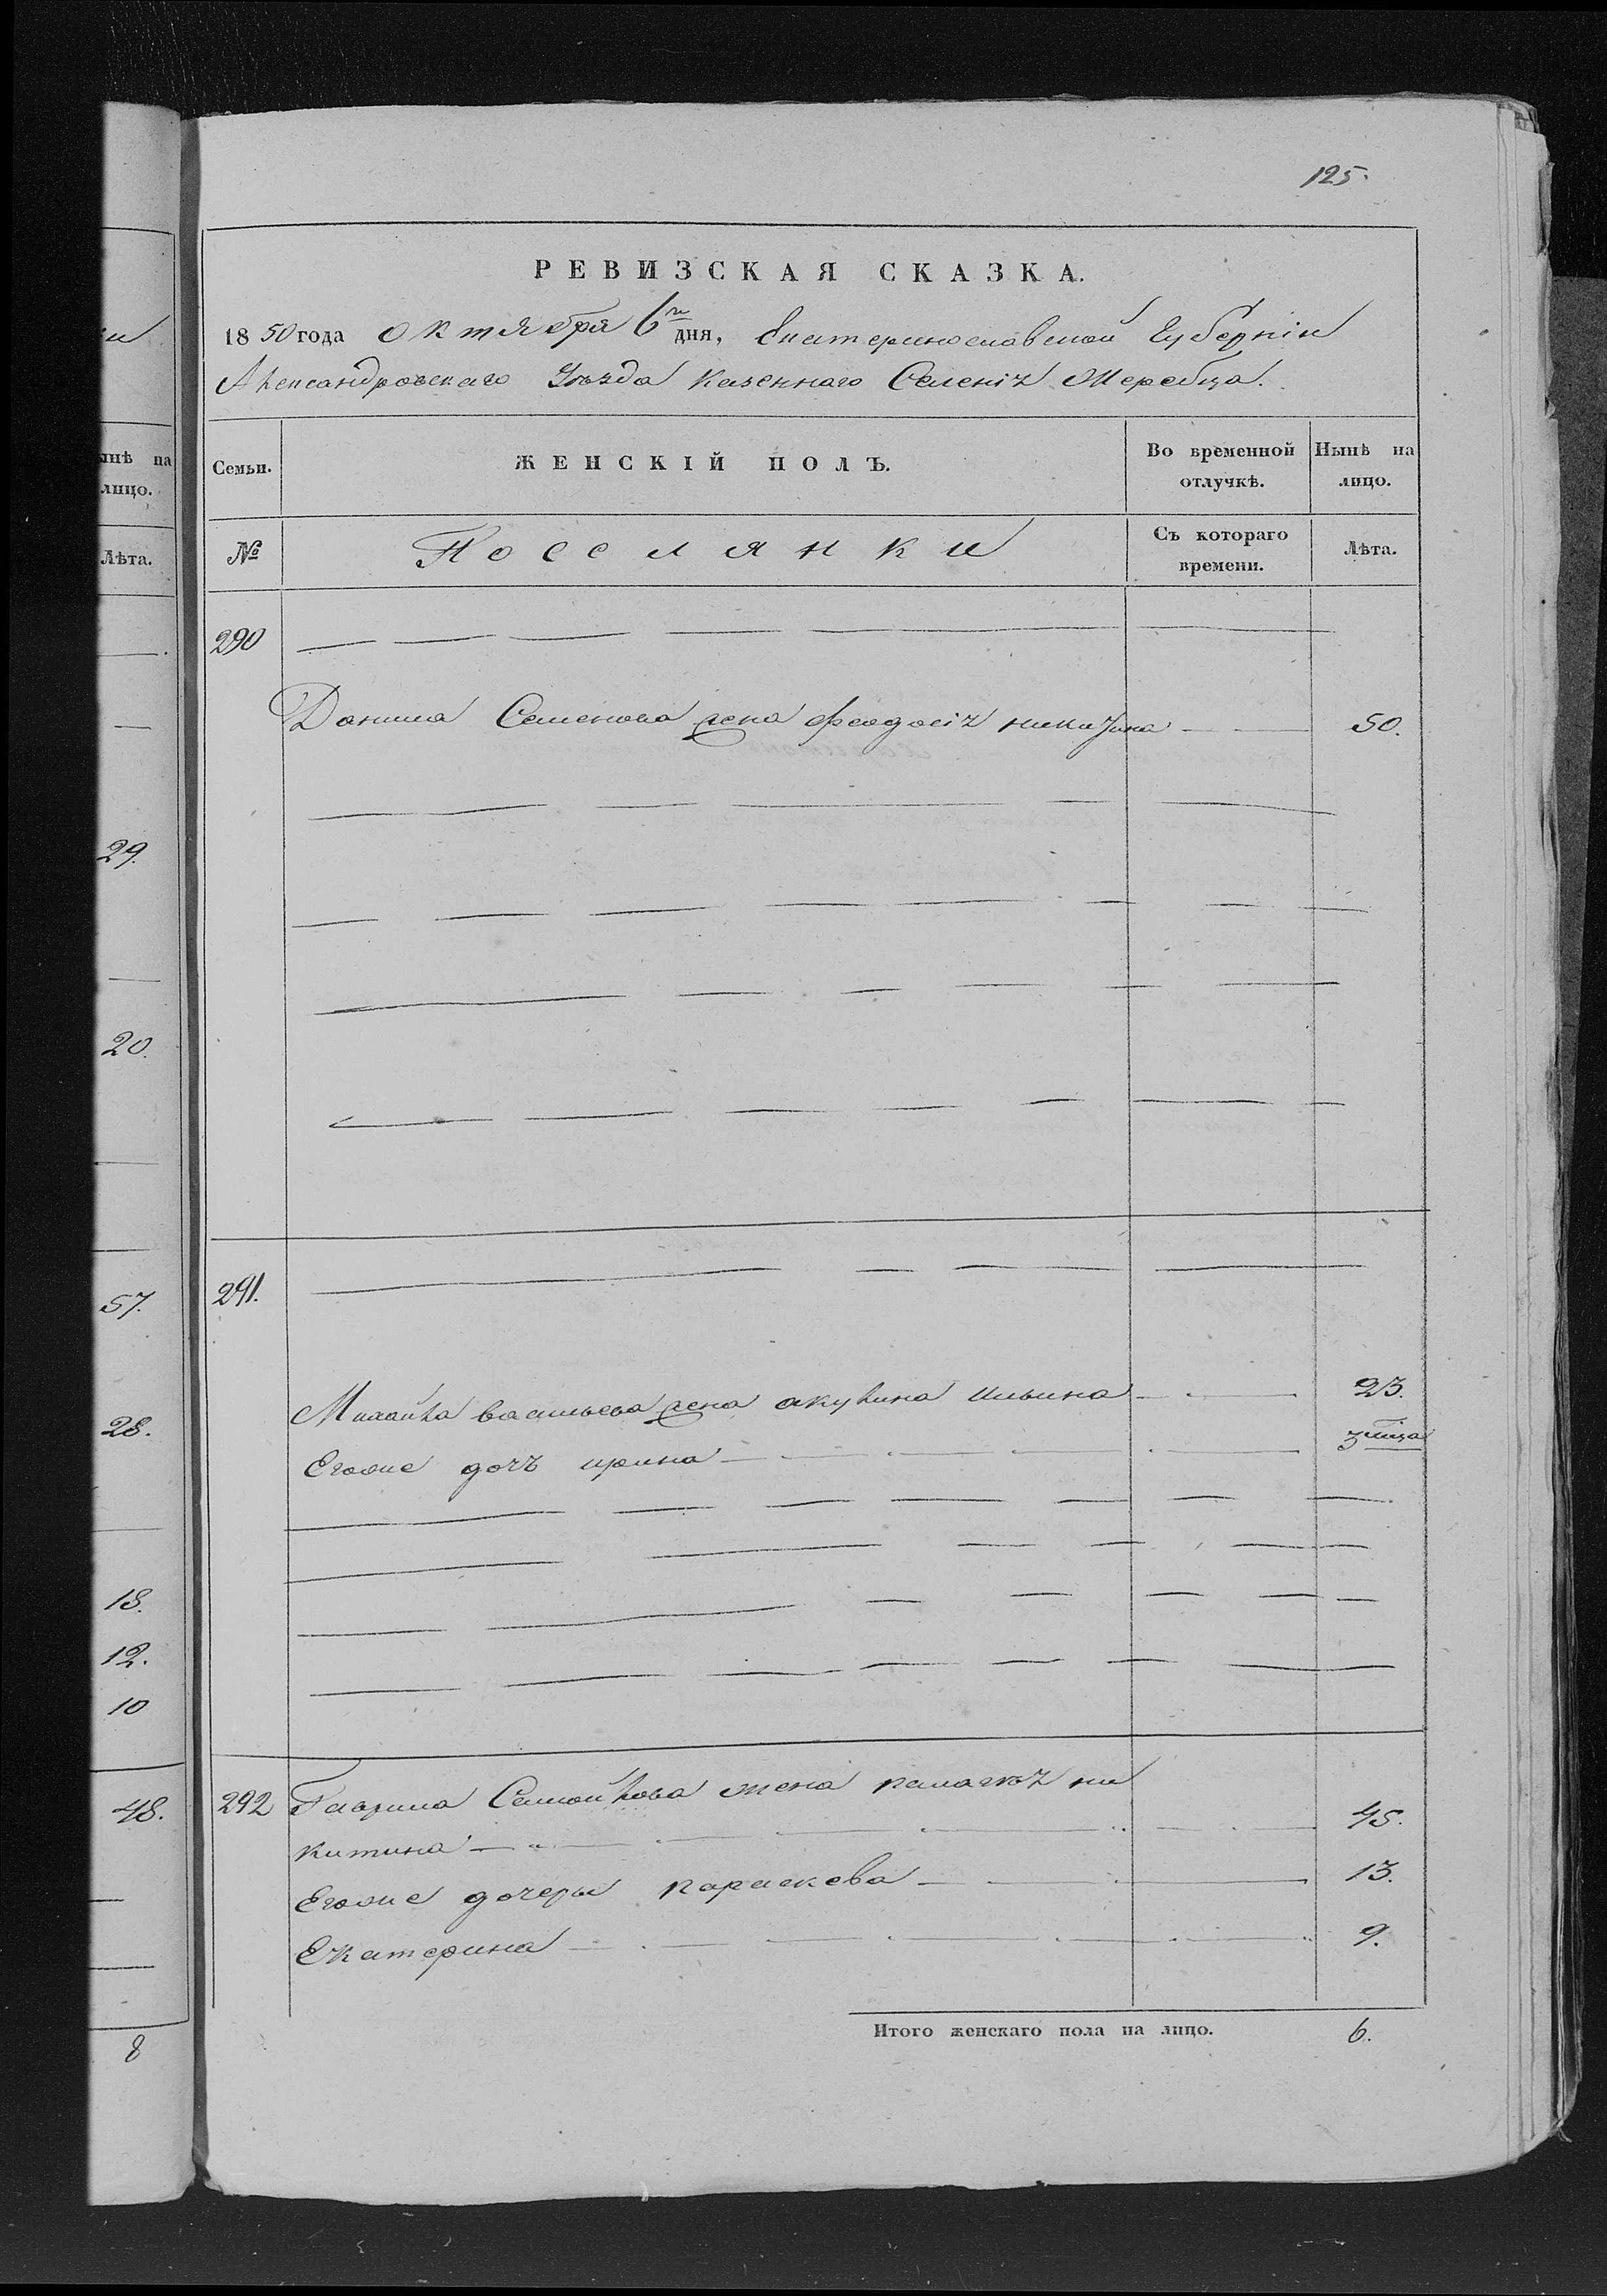 125.
РЕВИЗСКАЯ СКАЗКА.
1850 года октября 6го дня, Екатеринославской Губерніи
Александровскаго Уѣзда казеннаго Селенія Жеребца.
нѣ на
лицо.
Лѣта.
Семьи.
ЖЕНСКІЙ ПОЛЪ.
Во временной
отлучкѣ.
Нынѣ на
лицо.
№
Посселянки
Съ котораго
времени.
Лѣта.
290
Данила Семенова жена феодосія никитина 50.
29.
20.
57.
28.
18.
12.
10
48.
8
291.
Михайла васильева жена акулина Ильина 23.
Егоже дочь ирина 3 мца
292 Гаврила Самойлова жена палагея ни
китина 45.
Егоже дочеры параскева 13.
Екатерина 9.
Итого женскаго пола на лицо. 6.